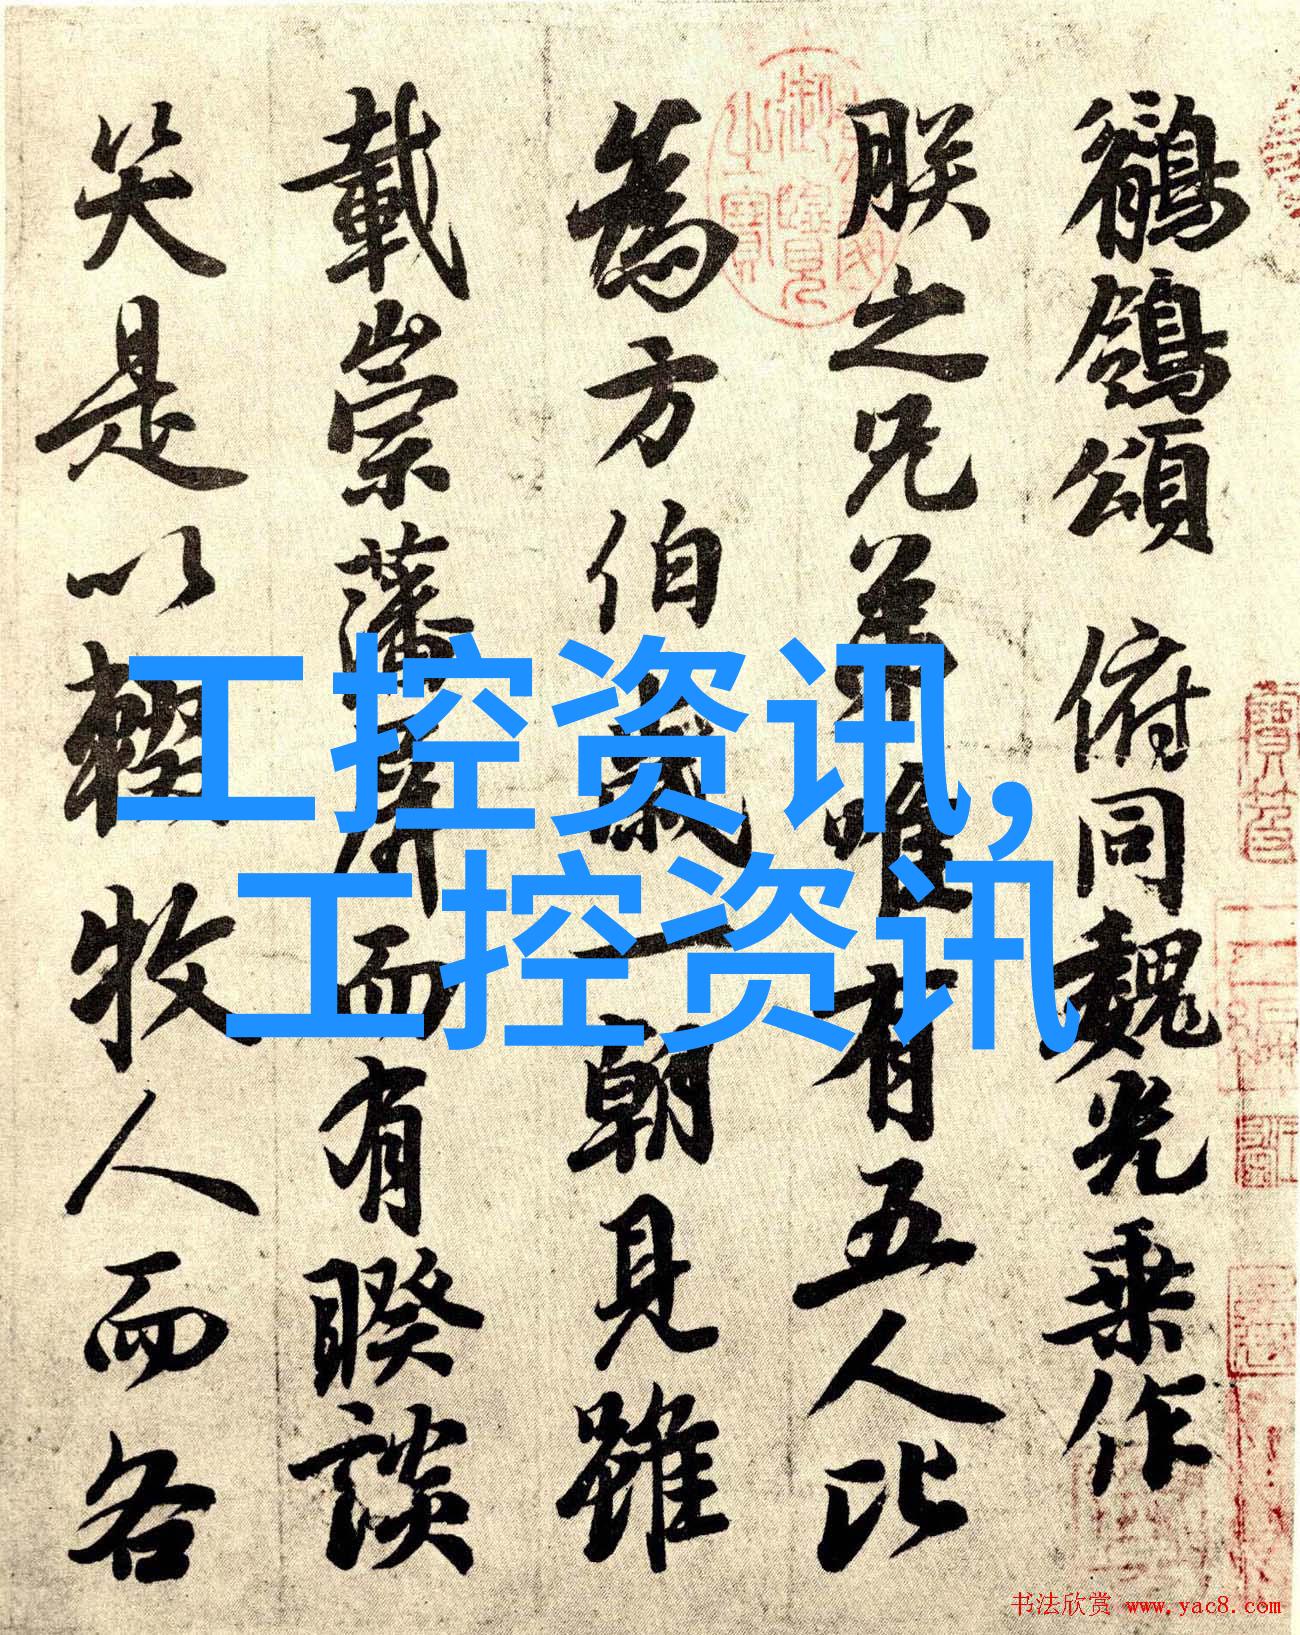 鶺鴒頌 俯同魏光乘作
朕之兄弟唯有五人比
為方伯歲一朝見雖
載崇藩屏而有睽談
笑是以輟牧人而各
工控资讯,
工控资讯
书法欣赏 www.yac8.com